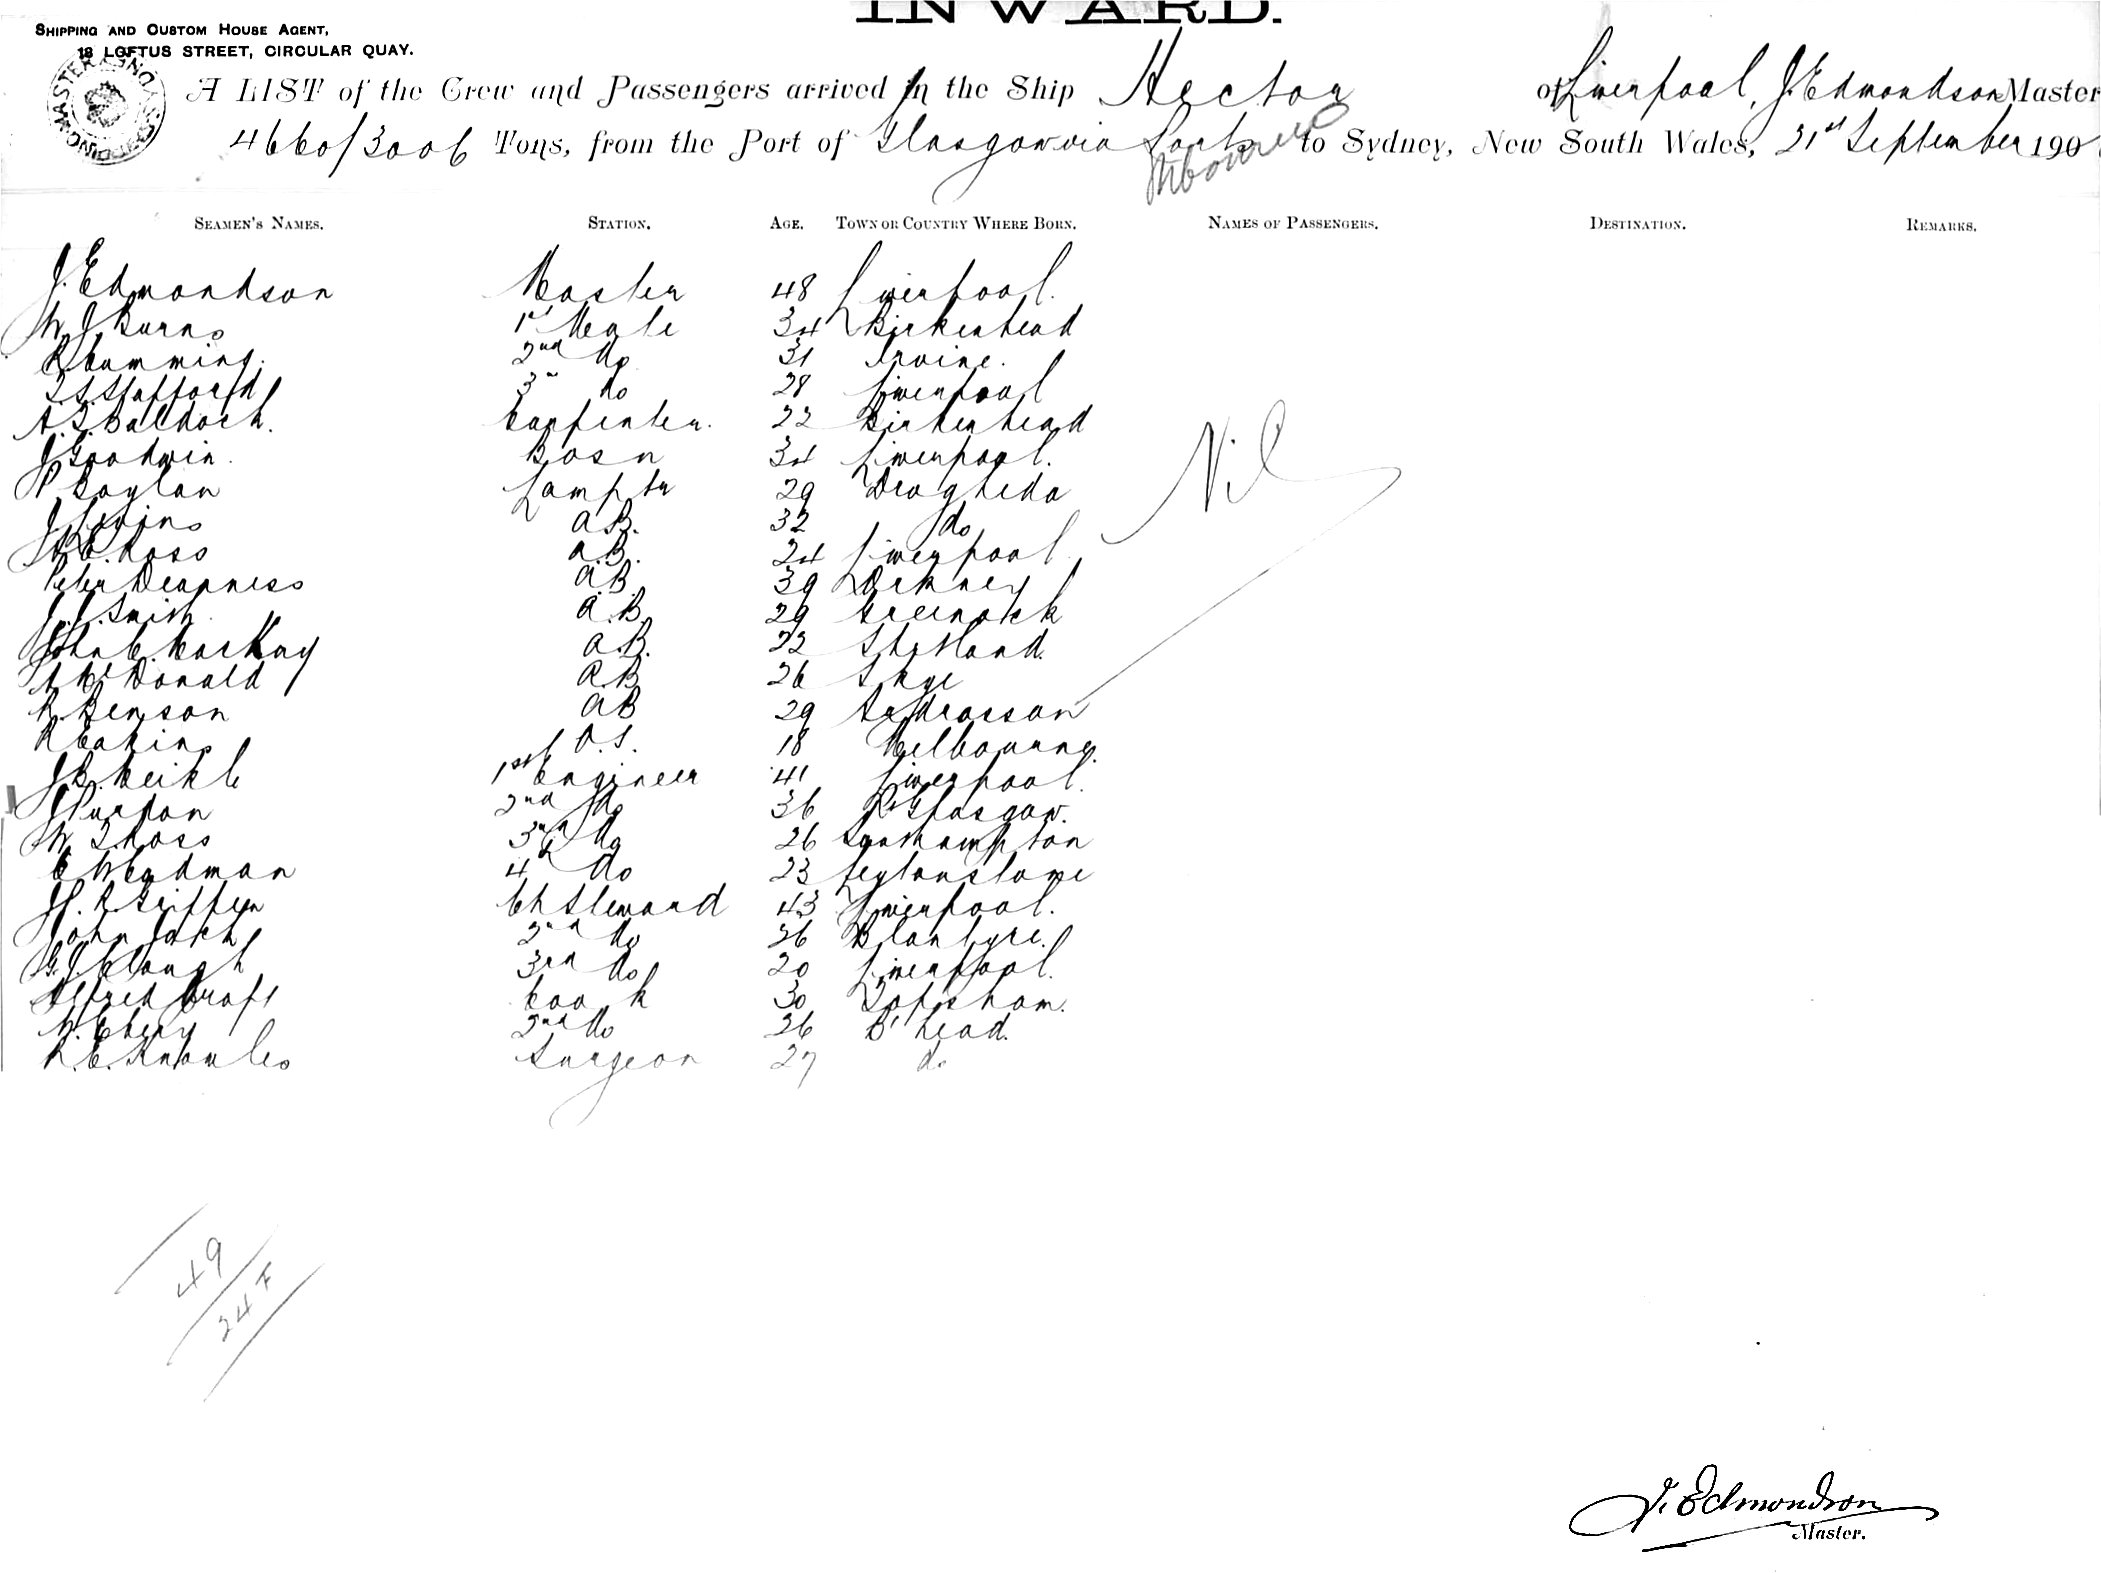 INWARD.
SHIPPING AND CUSTOM HOUSE AGENT,
18 LOFTUS STREET, CIRCULAR QUAY.
A LIST of the Crew and Passengers arrived in the Ship Hector of Liverpool, J. Edmondson Master
4660/3006 Tons, from the Port of Glasgow via Ports Melbourne to Sydney, New South Wales, 21st September 190
SEAMEN'S NAMES. STATION. AGE. TOWN OR COUNTRY WHERE BORN. NAMES OF PASSENGERS. DESTINATION. REMARKS.
J. Edmondson Master 48 Liverpool.
W. J. Burns 1st Mate 34 Birkenhead
R Cumming. 2nd do 31 Irvine.
T. S. Stafford 3rd do 28 Liverpool
A. T. Baldock. Carpenter. 22 Birkenhead
J Goodwin. Bosn 34 Liverpool.
P Boylan Lamptr 29 Drogheda
J. A.B. 32 do
C. Ross A.B. 24 Liverpool
Peter Dearness A.B. 39 Orkney
J. J. Smith A.B. 29 Greenock
John C. MacKay A.B. 22 Shetland.
A McDonald A.B. 26 Skye
R. Benson AB 29 Ardrossan
R Eakins O.S. 18 Melbourne.
J. B. Meikle 1st Engineer 41 Liverpool.
J Purdon 2nd do 36 Glasgow.
W. T. Ross 3rd do 26 Southampton
C Weadman 4th do 23 Leytonstone
J. R. Griffen Ch Steward 43 Liverpool.
John Jack 2nd do 26 Blantyre.
G. J. Clough 3rd do 20 Liverpool.
Alfred Croft Cook 30 Topsham.
W. Ebery 2nd do 26 B'head.
R. C. Knowles Surgeon 27 do
Nil
49
24 F
J. Edmondson
Master.